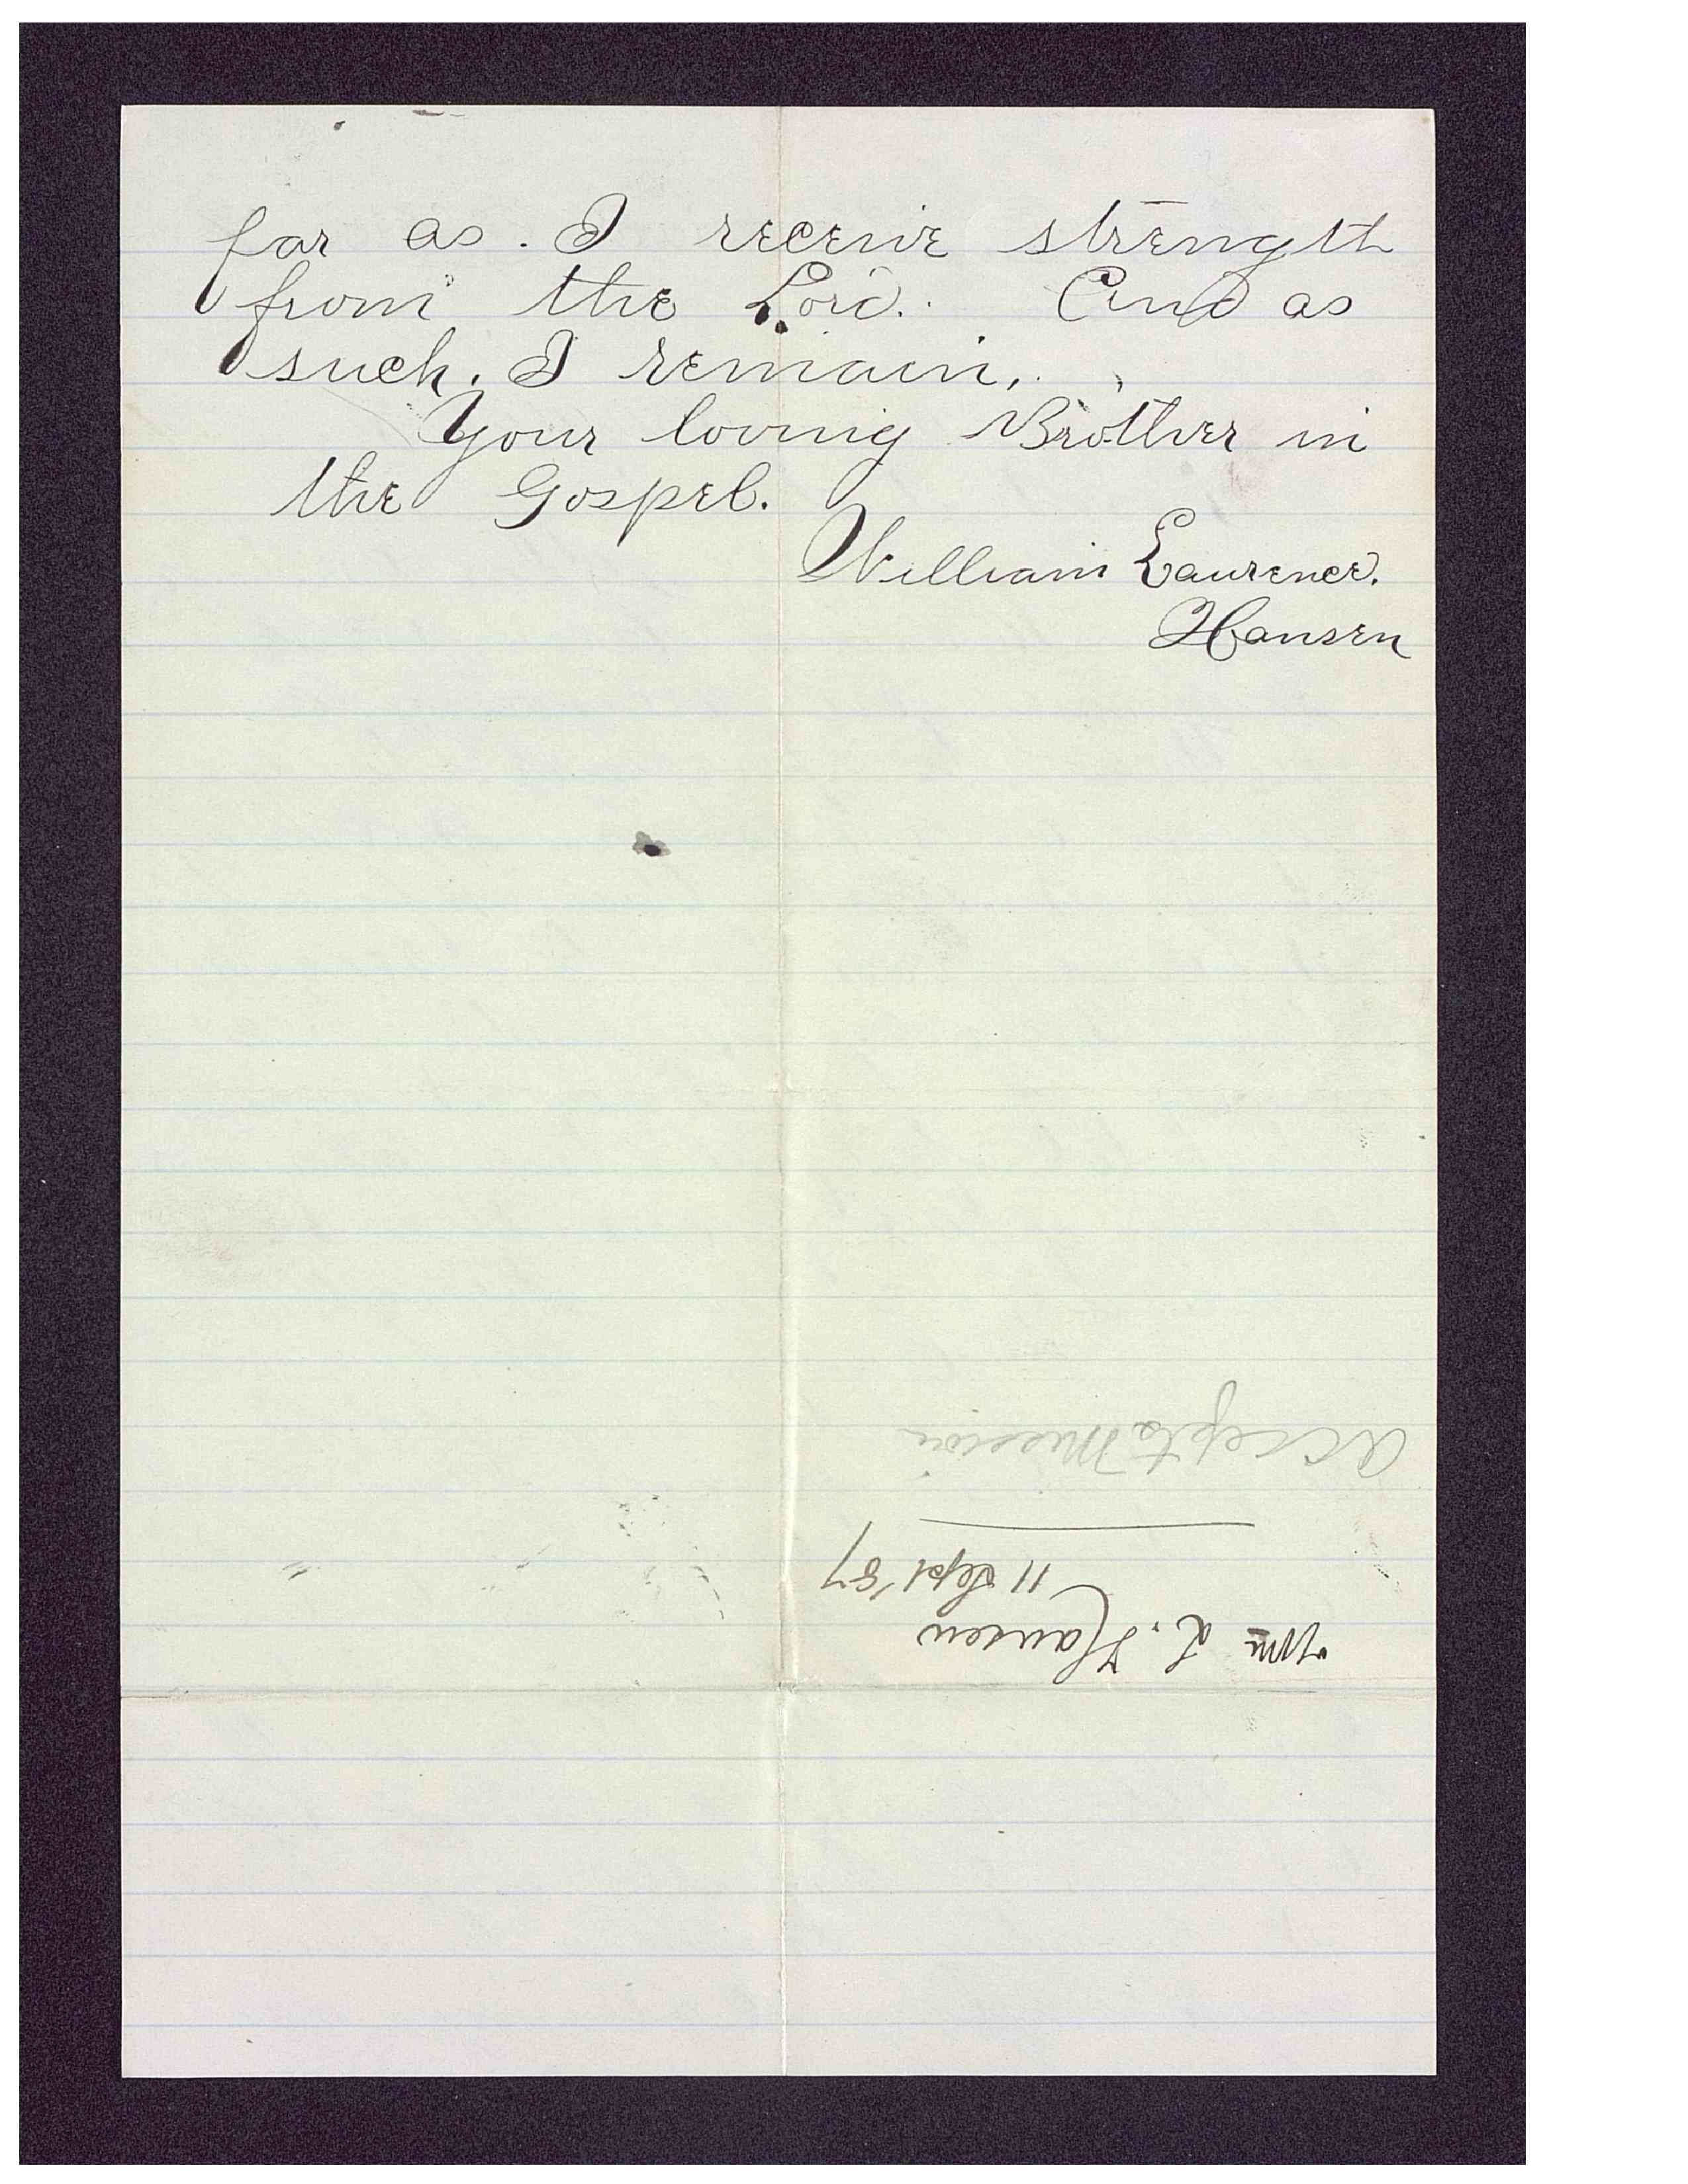 far as. I receive strength
from the Lord. And as
such, I remain,
Your loving Brother in
the Gospel.
William Laurence.
Hansen
Wm L. Hansen
11 Sept '87
Accepts Mission